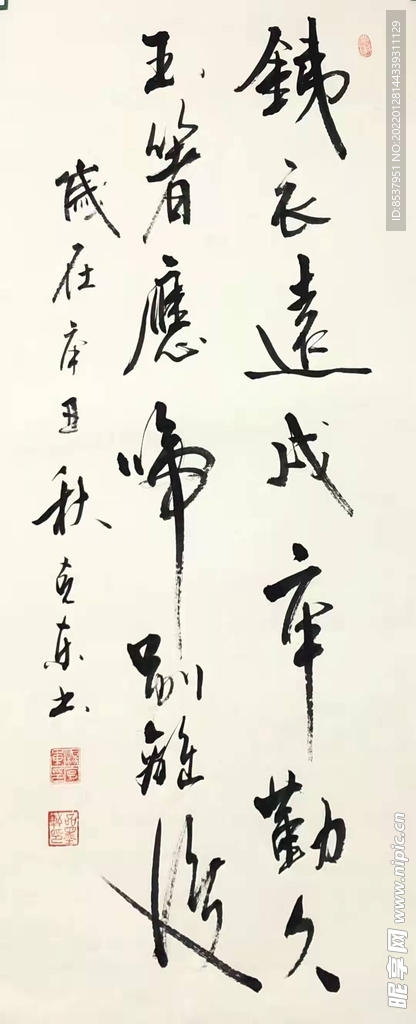 鐵衣遠戍辛勤久
玉箸應啼別離後
歲在庚丑秋克東書
昵享网 www.nipic.cn
ID:8537951 NO:20220128144339311129